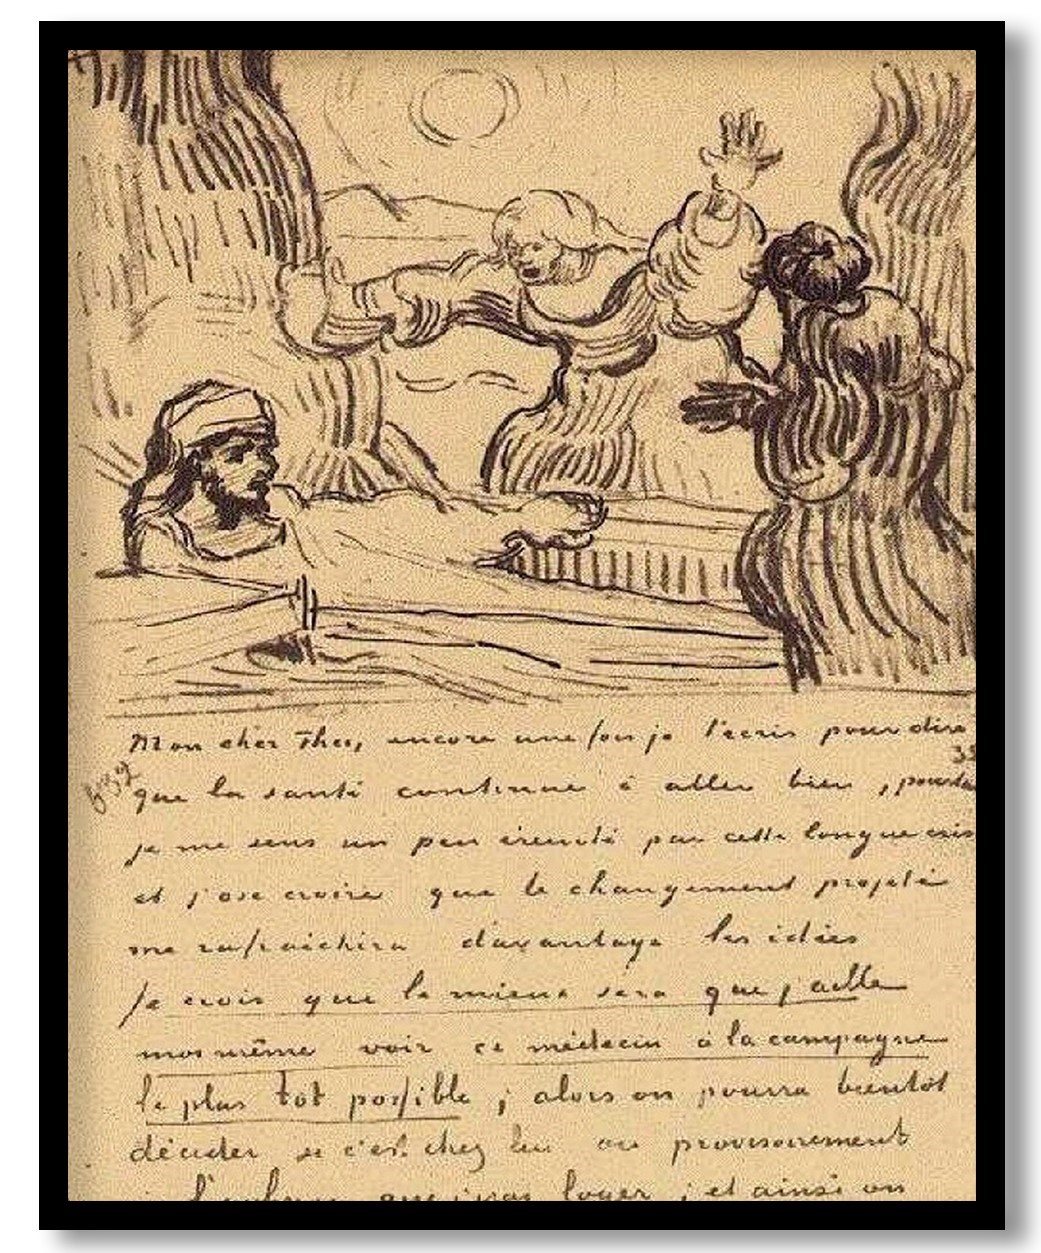 Mon cher Theo, encore une fois je t'écris pour dire
que la santé continue à aller bien, pourtant
je me sens un peu éreinté par cette longue crise
et j'ose croire que le changement projeté
me rafraichira davantage les idées
Je crois que le mieux sera que j'aille
moi même voir ce médecin à la campagne
le plus tôt possible ; alors on pourra bientôt
décider si c'est chez lui ou provisoirement
à l'auberge que j'irai loger ; et ainsi on